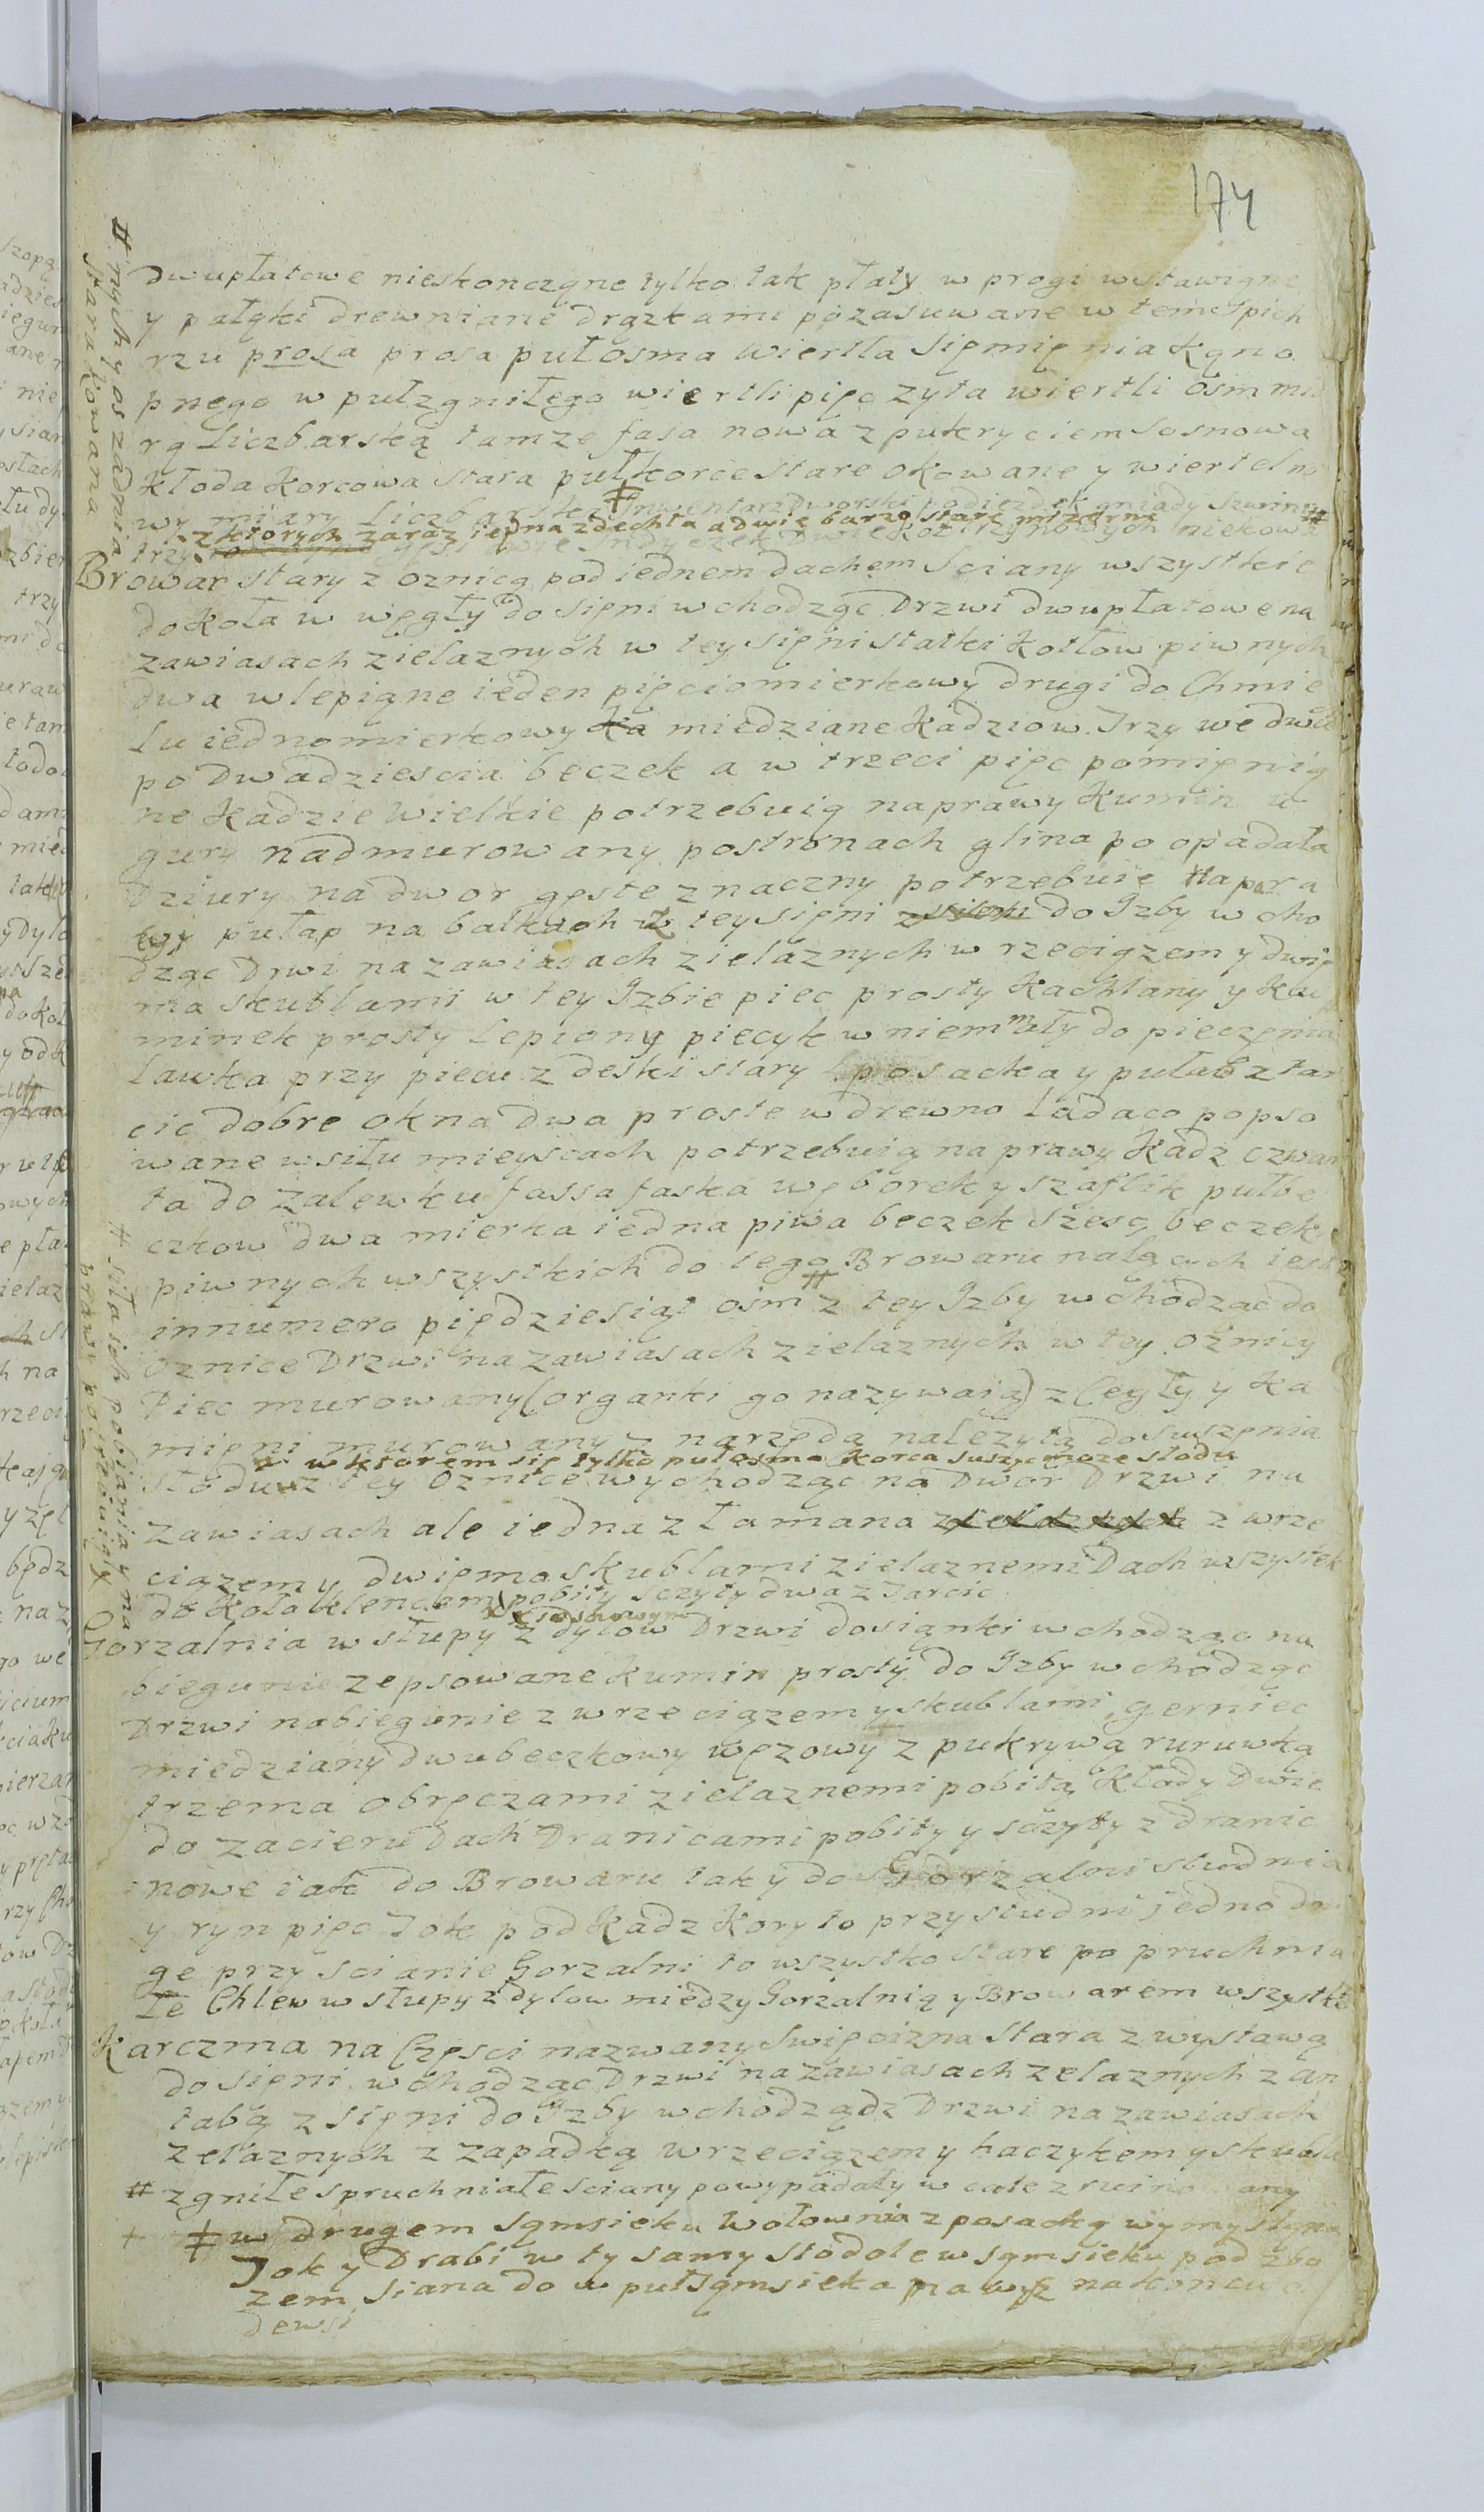 174
dwupłatowe nieskonczone tylko tak płaty w progi wstawione
y pałąki drewniane drązkami pozasuwane w tem Spich
rzu prosa prosa pułosma wiertla Siemienia Kono
pnego w pułzgniłego wiertli pięc zyta wiertli osm mia
rą Liczbarską tamze fasa nowa z pukryciem sosnowa
Kłoda korcowa stara pułkorce stare okowane y wierteln
wy miary Liczbarskiey ǂ Inwentarz dworski podiezdek gniady
z ktorych zaraz iedna zdechła a dwie barzo stare mizerne #
trzy gęsi dwie Indyczek dwie koz
Browar stary z oznicą pod iednem dachem Sciany wszystkie
do Koła w węgły do sieni wchodząc Drzwi dwupłatowe na
zawiasach zielaznych w tey sieni statki Kotłow piwnych
dwa wlepione ieden pięciomierkowy drugi do Chmie
lu iednomierkowy miedziane Kadziow Trzy we dwoch
po Dwadziescia beczek a w trzeci pięc pomienio
ne Kadzie wielkie potrzebuią naprawy Kumin u
gury nadmurowany postronach glina po opadała
Dziury na dwor gęste znaczny potrzebuie Repera
cyi pułap na balkach z tey sieni do Izby wcho
dząc Drwi na zawiasach zielaznych w rzeciązem y dwie
ma skublami w tey Izbie piec prosty Kachlany y Ku
minek prosty Lepiony piecyk w niem mały do pieczenia
Lawka przy piecu z deski stary posacka y pułab z tar
cic dobre okna dwa proste w drewno ladaco popso
wane w siłu mieyscach potrzebuią naprawy Kadz czwar
ta do zalewku fassa faska węborek y szaflik pułbe
czkow dwa mierka iedna piwa beczek szesc beczek
piwnych wszystkich do tego Browaru nalęcych iest
innumero piędziesiąt ośm # z tey Izby wchodząc do
Oznice Drzwi na zawiasach zielaznych w tey oznicy
Piec murowany (organki go nazywaią) z Cegły y Ka
mieni murowany z narzędą nalezytą do suszenia
w ktorem się tylko pułosma korca suszyc moze słodu
słodu z tey Oznice wychodząc na Dwor Drzwi na
zawiasach ale iedna złamana z wrze
ciązem y dwiema skublami zielaznemi Dach wszystek
do Koła pobity sczyty dwa z Tarcic
sosnowym
Gorzalnia w słupy z dylow Drzwi do sionki wchodząc na
biegunie zepsowane Kumin prosty do Izby wchodząc
Drzwi na biegunie z wrzeciązem y skublami gerniec
miedziany dwubeczkowy węzowy z pukrywą ruruwką
trzema obręczami zielaznemi pobitą Kłody Dwie
do zacieru Dach Dranicami pobity y sczyty z dranic
nowe iak do Browaru tak y do Gorzalni studnia
y ryn pięc Tok pod Kadz Koryto przy studni jedno dru
ge przy scianie Gorzalni to wszystko stare po pruchnia
łe Chlew w słupy z dylow miedzy Gorzalnią y Browarem wszystko
Karczma na Częsci nazwany Swięcizna Stara z wystawą
do sieni wchodząc Drzwi na zawiasach zelaznych z an
tabą z sieni do Izby wchodządz Drzwi na zawiasach
zelaznych z zapadką wrzeciązem y haczykem y skubla
# zgniłe spruchniałe sciany powypadały w całe zruinowany
+ ǂ w drugem sąmsieku wołownia z posacką wymysłyna
Tok y Drabi w ty samy stodole w sąmsieku pod zbo
zem siana do w puł sąmsieka na wyz na koncu
dewsi
# nych y os zadnia
stara Kowana
# siła ich pobiania y na
prawy potrzebuią